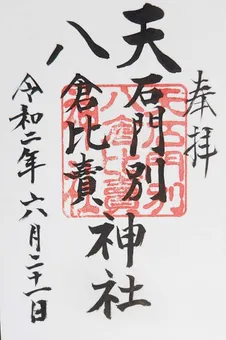 奉拝
天石門別
八倉比賣
神社
令和二年六月二十一日
天石門別
八倉比賣